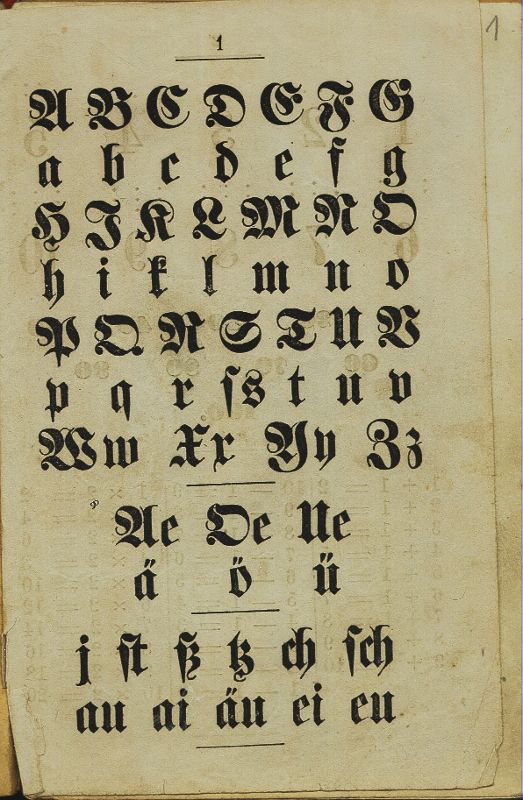 1
1
A B C D E F G
a b c d e f g
H I K L M N O
h i k l m n o
P Q R S T U V
p q r ſs t u v
Ww Xx Yy Zz
Ae Oe Ue
ä ö ü
j ſt ß tz ch ſch
au ai äu ei eu